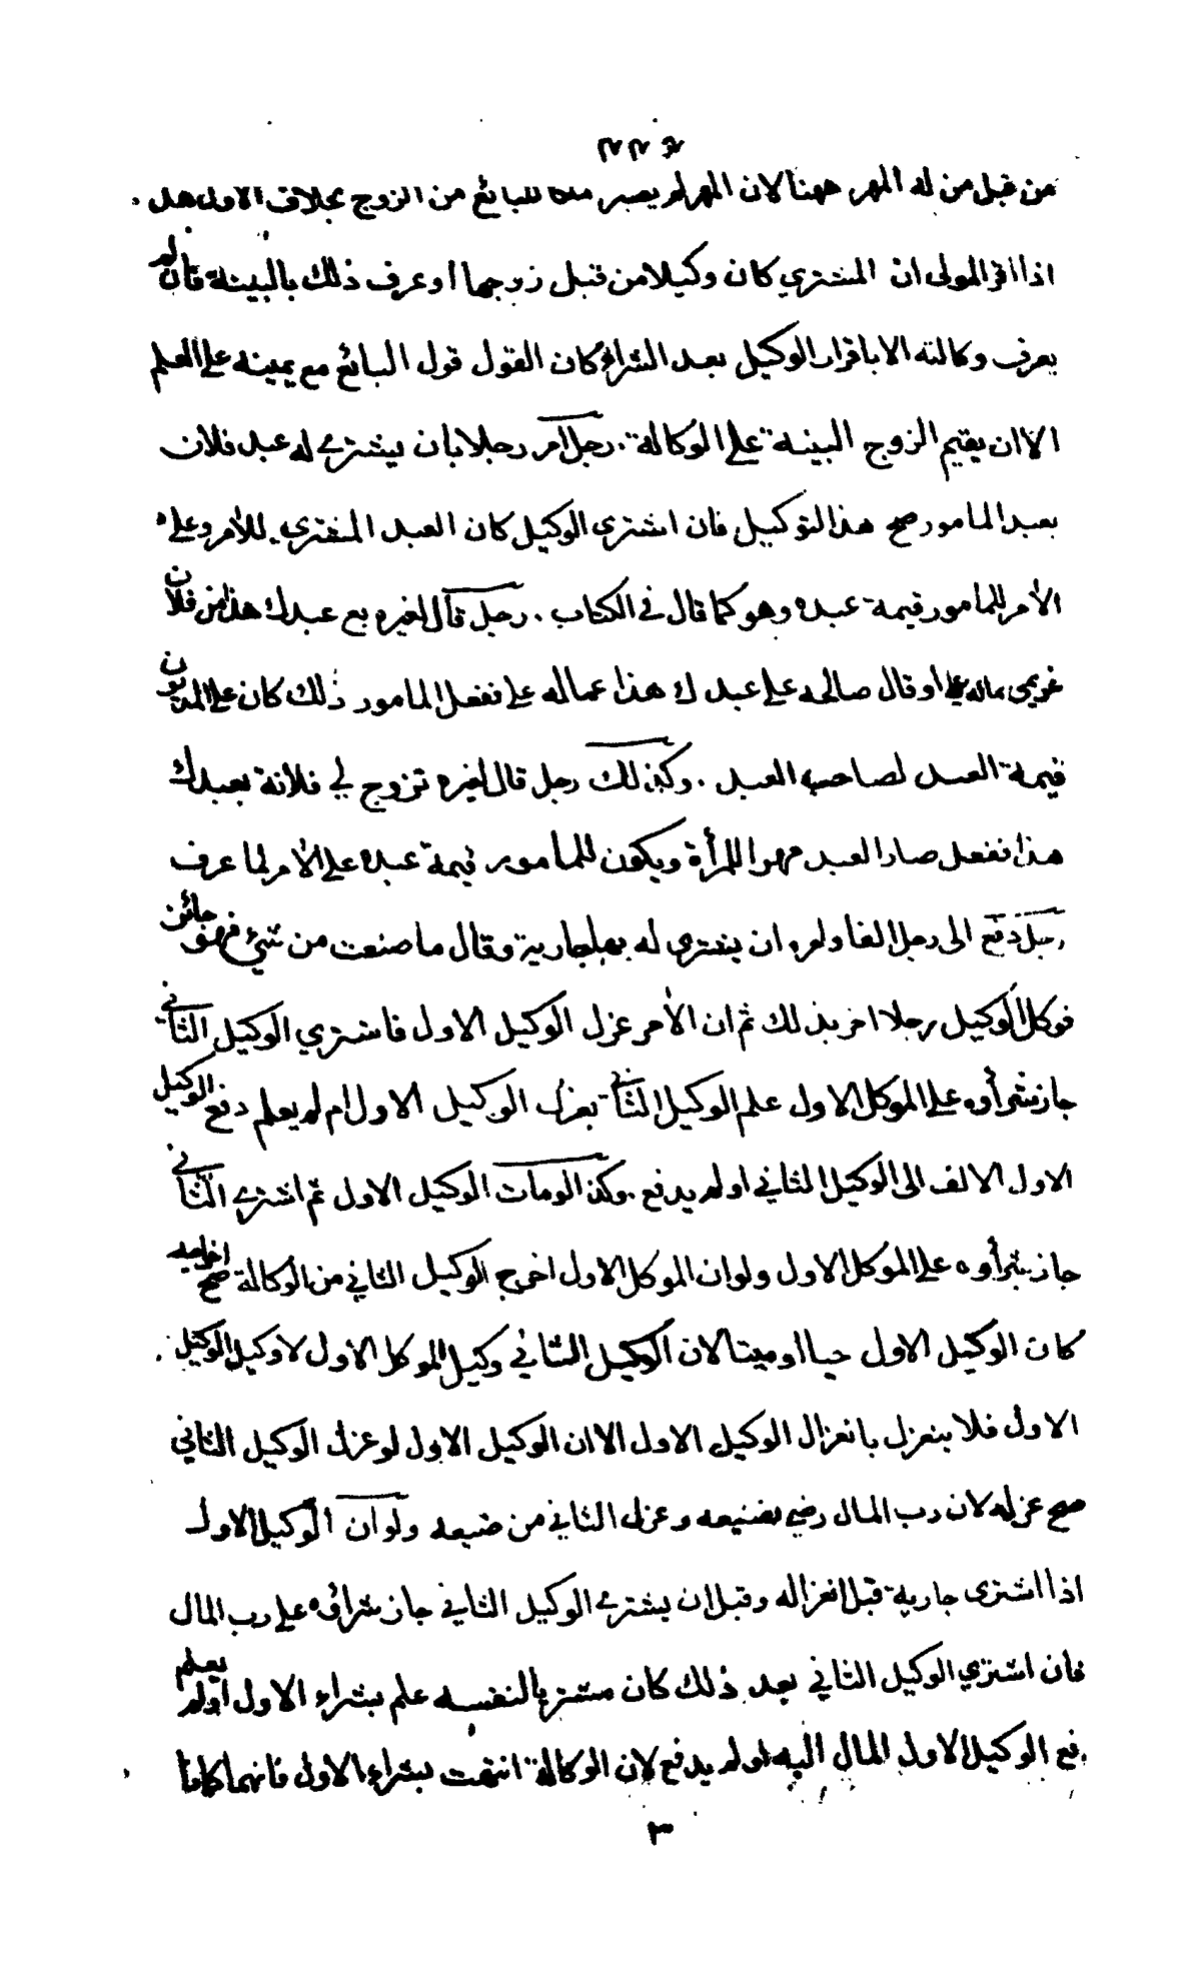 ٢٢٤
من قبل من له المهر ههنا لان المهر لم يصير ملكا للبائع من الزوج بخلاف الاول هذا
اذا اقر المولى ان المشتري كان وكيلا من قبل زوجها او عرف ذلك بالبينة فان لم
يعرف وكالته الا باقرار الوكيل بعد الشراء كان القول قول البائع مع يمينه على العلم
الا ان يقيم الزوج البينة على الوكالة . رجل امر رجلا بان يشتري له عبد فلان
بعبد المامور صح هذا التوكيل فان اشترى الوكيل كان العبد المشترى للآمر وعلى
الآمر للمامور قيمة عبده وهو كما قال في الكتاب . رجل قال لغيره بع عبدك هذا من فلان
غريمي بماله علي او قال صالحه على عبدك هذا عما له علي ففعل المامور ذلك كان على المديون
قيمة العبد لصاحب العبد . وكذلك رجل قال لغيره تزوج لي فلانة بعبدك
هذا ففعل صار العبد مهرا للمرأة ويكون للمامور قيمة عبده على الآمر لما عرف
رجل دفع الى رجل الفا وامره ان يشتري له بها جارية وقال ما صنعت من شيء فهو جائز
فوكل الوكيل رجلا اخر بذلك ثم ان الآمر عزل الوكيل الاول فاشتري الوكيل الثاني
جاز شرأوه على الموكل الاول علم الوكيل الثاني بعزل الوكيل الاول ام لم يعلم دفع الوكيل
الاول الالف الى الوكيل الثاني اولم يدفع . وكذا لو مات الوكيل الاول ثم اشترى الثاني
جاز شرأوه على الموكل الاول ولو ان الموكل الاول اخرج الوكيل الثاني من الوكالة صح اخراجه
كان الوكيل الاول حيا او ميتا لان الوكيل الثاني وكيل الموكل الاول لا وكيل الوكيل
الاول فلا ينعزل بانعزال الوكيل الاول الا ان الوكيل الاول لو عزل الوكيل الثاني
صح عزله لان رب المال رضي بصنيعه وعزل الثاني من صنيعه ولو ان الوكيل الاول
اذا اشترى جارية قبل انعزاله وقبل ان يشترى الوكيل الثاني جاز شراؤه على رب المال
فان اشتري الوكيل الثاني بعد ذلك كان مشتريا لنفسه علم بشراء الاول اولم يعلم
دفع الوكيل الاول المال اليه اولم يدفع لان الوكالة انتهت بشراء الاول فانهما كانا
٣